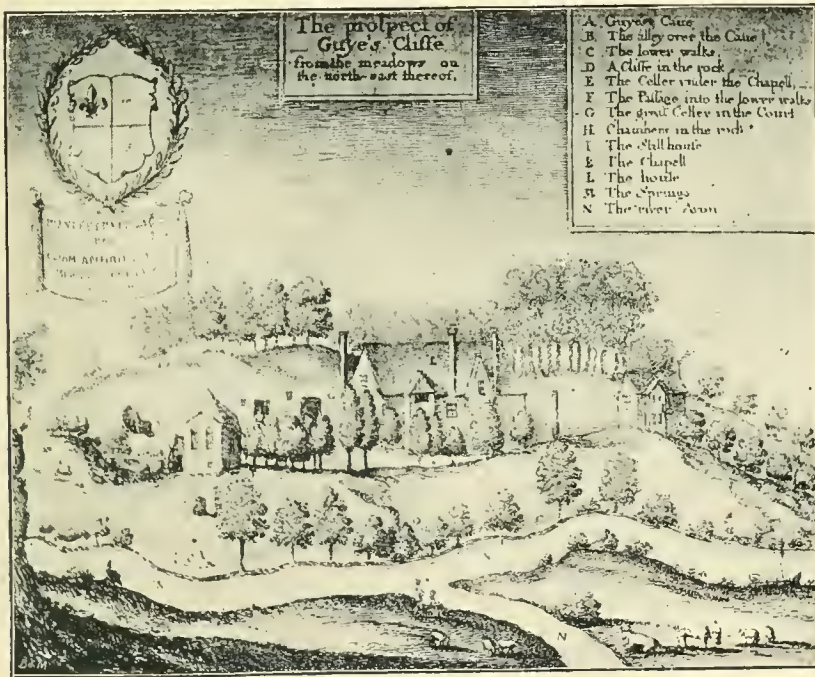 The prospect of
Guye's Cliffe
from the meadows on
the north-east thereof.
A Guyes Caue
B The alley over the Caue
C The lower walks,
D A Cliffe in the rock
E The Celler vnder the Chapell,
F The Passage into the lower walks
G The great Celler in the Court
H Chambers in the rock
I The Still house
K The Chapell
L The house
M The Springs
N The river Avon
L
N
N
N
B & M